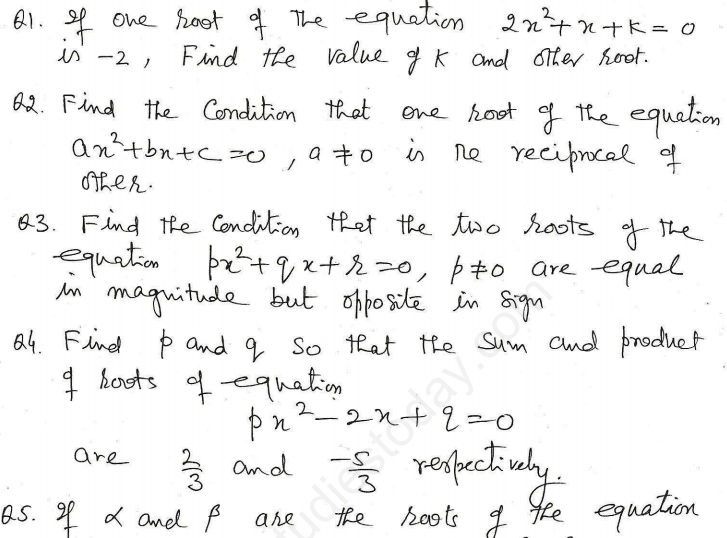 Q1. If one root of the equation 2x²+x+k=0
is -2, Find the value of k and other root.
Q2. Find the Condition that one root of the equation
ax²+bx+c=0, a≠0 is the reciprocal of
other.
Q3. Find the Condition that the two roots of the
equation px²+qx+r=0, p≠0 are equal
in magnitude but opposite in sign
Q4. Find p and q so that the sum and product
of roots of equation
px²-2x+q=0
are 2/3 and -5/3 respectively.
Q5. If α and β are the roots of the equation
studiestoday.com